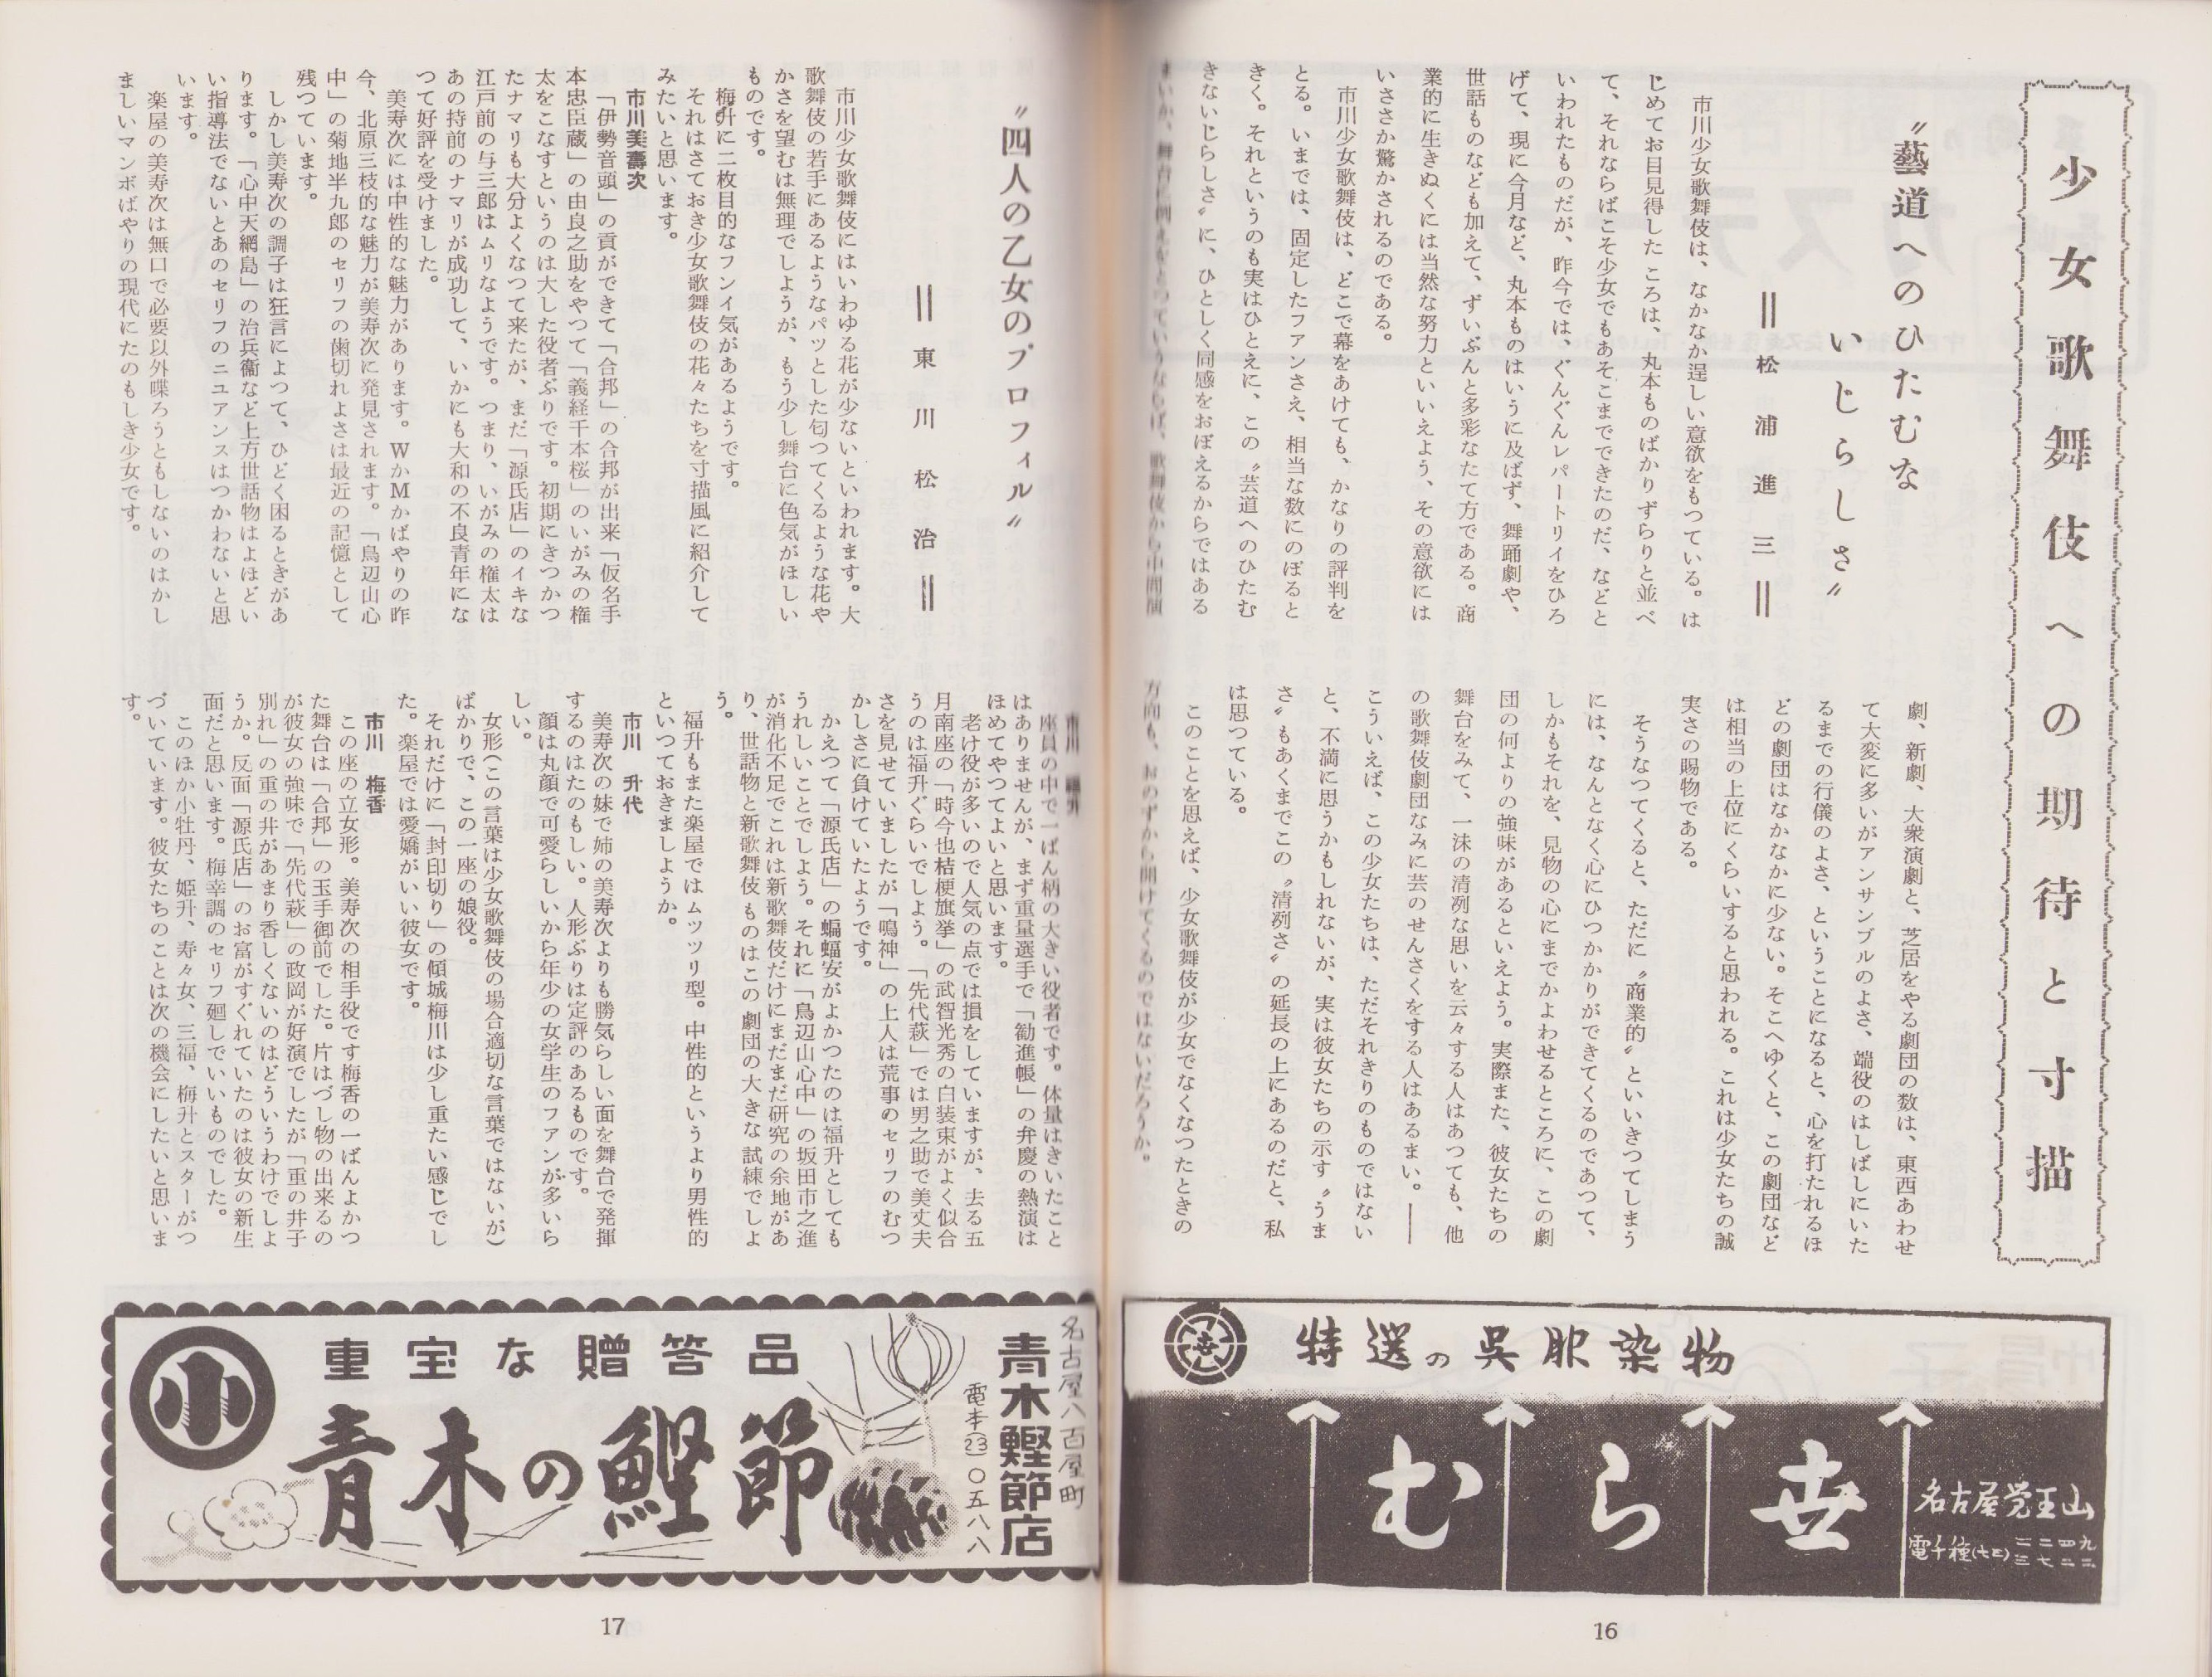 少女歌舞伎への期待と寸描
〝藝道へのひたむな
いじらしさ〟
‖松浦進三‖
市川少女歌舞伎は、なかなか逞しい意欲をもつている。は
じめてお目見得したころは、丸本ものばかりずらりと並べ
て、それならばこそ少女でもあそこまでできたのだ、などと
いわれたものだが、昨今では、ぐんぐんレパートリイをひろ
げて、現に今月など、丸本ものはいうに及ばず、舞踊劇や、
世話ものなども加えて、ずいぶんと多彩なたて方である。商
業的に生きぬくには当然な努力といいえよう、その意欲には
いささか驚かされるのである。
市川少女歌舞伎は、どこで幕をあけても、かなりの評判を
とる。いまでは、固定したファンさえ、相当な数にのぼると
きく。それというのも実はひとえに、この〝芸道へのひたむ
きないじらしさ〟に、ひとしく同感をおぼえるからではある
まいか。舞台に例えをとつていうならば、歌舞伎から中間演
劇、新劇、大衆演劇と、芝居をやる劇団の数は、東西あわせ
て大変に多いがアンサンブルのよさ、端役のはしばしにいた
るまでの行儀のよさ、ということになると、心を打たれるほ
どの劇団はなかなかに少ない。そこへゆくと、この劇団など
は相当の上位にくらいすると思われる。これは少女たちの誠
実さの賜物である。
そうなつてくると、ただに〝商業的〟といいきつてしまう
には、なんとなく心にひつかかりができてくるのであつて、
しかもそれを、見物の心にまでかよわせるところに、この劇
団の何よりの強味があるといえよう。実際また、彼女たちの
舞台をみて、一沫の清冽な思いを云々する人はあつても、他
の歌舞伎劇団なみに芸のせんさくをする人はあるまい。――
こういえば、この少女たちは、ただそれきりのものではない
と、不満に思うかもしれないが、実は彼女たちの示す〝うま
さ〟もあくまでこの〝清冽さ〟の延長の上にあるのだと、私
は思つている。
このことを思えば、少女歌舞伎が少女でなくなつたときの
方向も、おのずから開けてくるのではないだろうか。
特選の呉服染物
むら世
名古屋覚王山
電千種(七三)
二二四九
三七二二
16
〝四人の乙女のプロフィル〟
‖東川松治‖
市川少女歌舞伎にはいわゆる花が少ないといわれます。大
歌舞伎の若手にあるようなパッとした匂つてくるような花や
かさを望むは無理でしようが、もう少し舞台に色気がほしい
ものです。
梅升に二枚目的なフンイ気があるようです。
それはさておき少女歌舞伎の花々たちを寸描風に紹介して
みたいと思います。
市川美壽次
「伊勢音頭」の貢ができて「合邦」の合邦が出来「仮名手
本忠臣蔵」の由良之助をやつて「義経千本桜」のいがみの権
太をこなすというのは大した役者ぶりです。初期にきつかつ
たナマリも大分よくなつて来たが、まだ「源氏店」のイキな
江戸前の与三郎はムリなようです。つまり、いがみの権太は
あの持前のナマリが成功して、いかにも大和の不良青年にな
つて好評を受けました。
美寿次には中性的な魅力があります。WかMかばやりの昨
今、北原三枝的な魅力が美寿次に発見されます。「鳥辺山心
中」の菊地半九郎のセリフの歯切れよさは最近の記憶として
残つています。
しかし美寿次の調子は狂言によつて、ひどく困るときがあ
ります。「心中天網島」の治兵衞など上方世話物はよほどい
い指導法でないとあのセリフのニユアンスはつかわないと思
います。
楽屋の美寿次は無口で必要以外喋ろうともしないのはかし
ましいマンボばやりの現代にたのもしき少女です。
市川　福升
座員の中で一ばん柄の大きい役者です。体量はきいたこと
はありませんが、まず重量選手で「勧進帳」の弁慶の熱演は
ほめてやつてよいと思います。
老け役が多いので人気の点では損をしていますが、去る五
月南座の「時今也桔梗旗挙」の武智光秀の白装束がよく似合
うのは福升ぐらいでしよう。「先代萩」では男之助で美丈夫
さを見せていましたが「鳴神」の上人は荒事のセリフのむつ
かしさに負けていたようです。
かえつて「源氏店」の蝙蝠安がよかつたのは福升としても
うれしいことでしよう。それに「鳥辺山心中」の坂田市之進
が消化不足でこれは新歌舞伎だけにまだまだ研究の余地があ
り、世話物と新歌舞伎ものはこの劇団の大きな試練でしよ
う。
福升もまた楽屋ではムッツリ型。中性的というより男性的
といつておきましようか。
市川　升代
美寿次の妹で姉の美寿次よりも勝気らしい面を舞台で発揮
するのはたのもしい。人形ぶりは定評のあるものです。
顔は丸顔で可愛らしいから年少の女学生のファンが多いら
しい。
女形(この言葉は少女歌舞伎の場合適切な言葉ではないが)
ばかりで、この一座の娘役。
それだけに「封印切り」の傾城梅川は少し重たい感じでし
た。楽屋では愛嬌がいい彼女です。
市川　梅香
この座の立女形。美寿次の相手役です梅香の一ばんよかつ
た舞台は「合邦」の玉手御前でした。片はづし物の出来るの
が彼女の強味で「先代萩」の政岡が好演でしたが「重の井子
別れ」の重の井があまり香しくないのはどういうわけでしよ
うか。反面「源氏店」のお富がすぐれていたのは彼女の新生
面だと思います。梅幸調のセリフ廻しでいいものでした。
このほか小牡丹、姫升、寿々女、三福、梅升とスターがつ
づいています。彼女たちのことは次の機会にしたいと思いま
す。
小
重宝な贈答品
青木の鰹節
名古屋八百屋町
青木鰹節店
電本(23)〇五八八
17